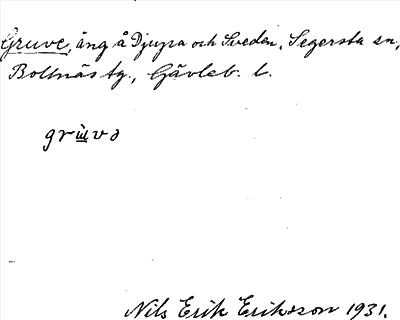 Gruve, äng å Djupa och Sveden, Segersta sn,
Bollnäs tg., Gävleb. l.
grùvə
Nils Erik Eriksson 1931.